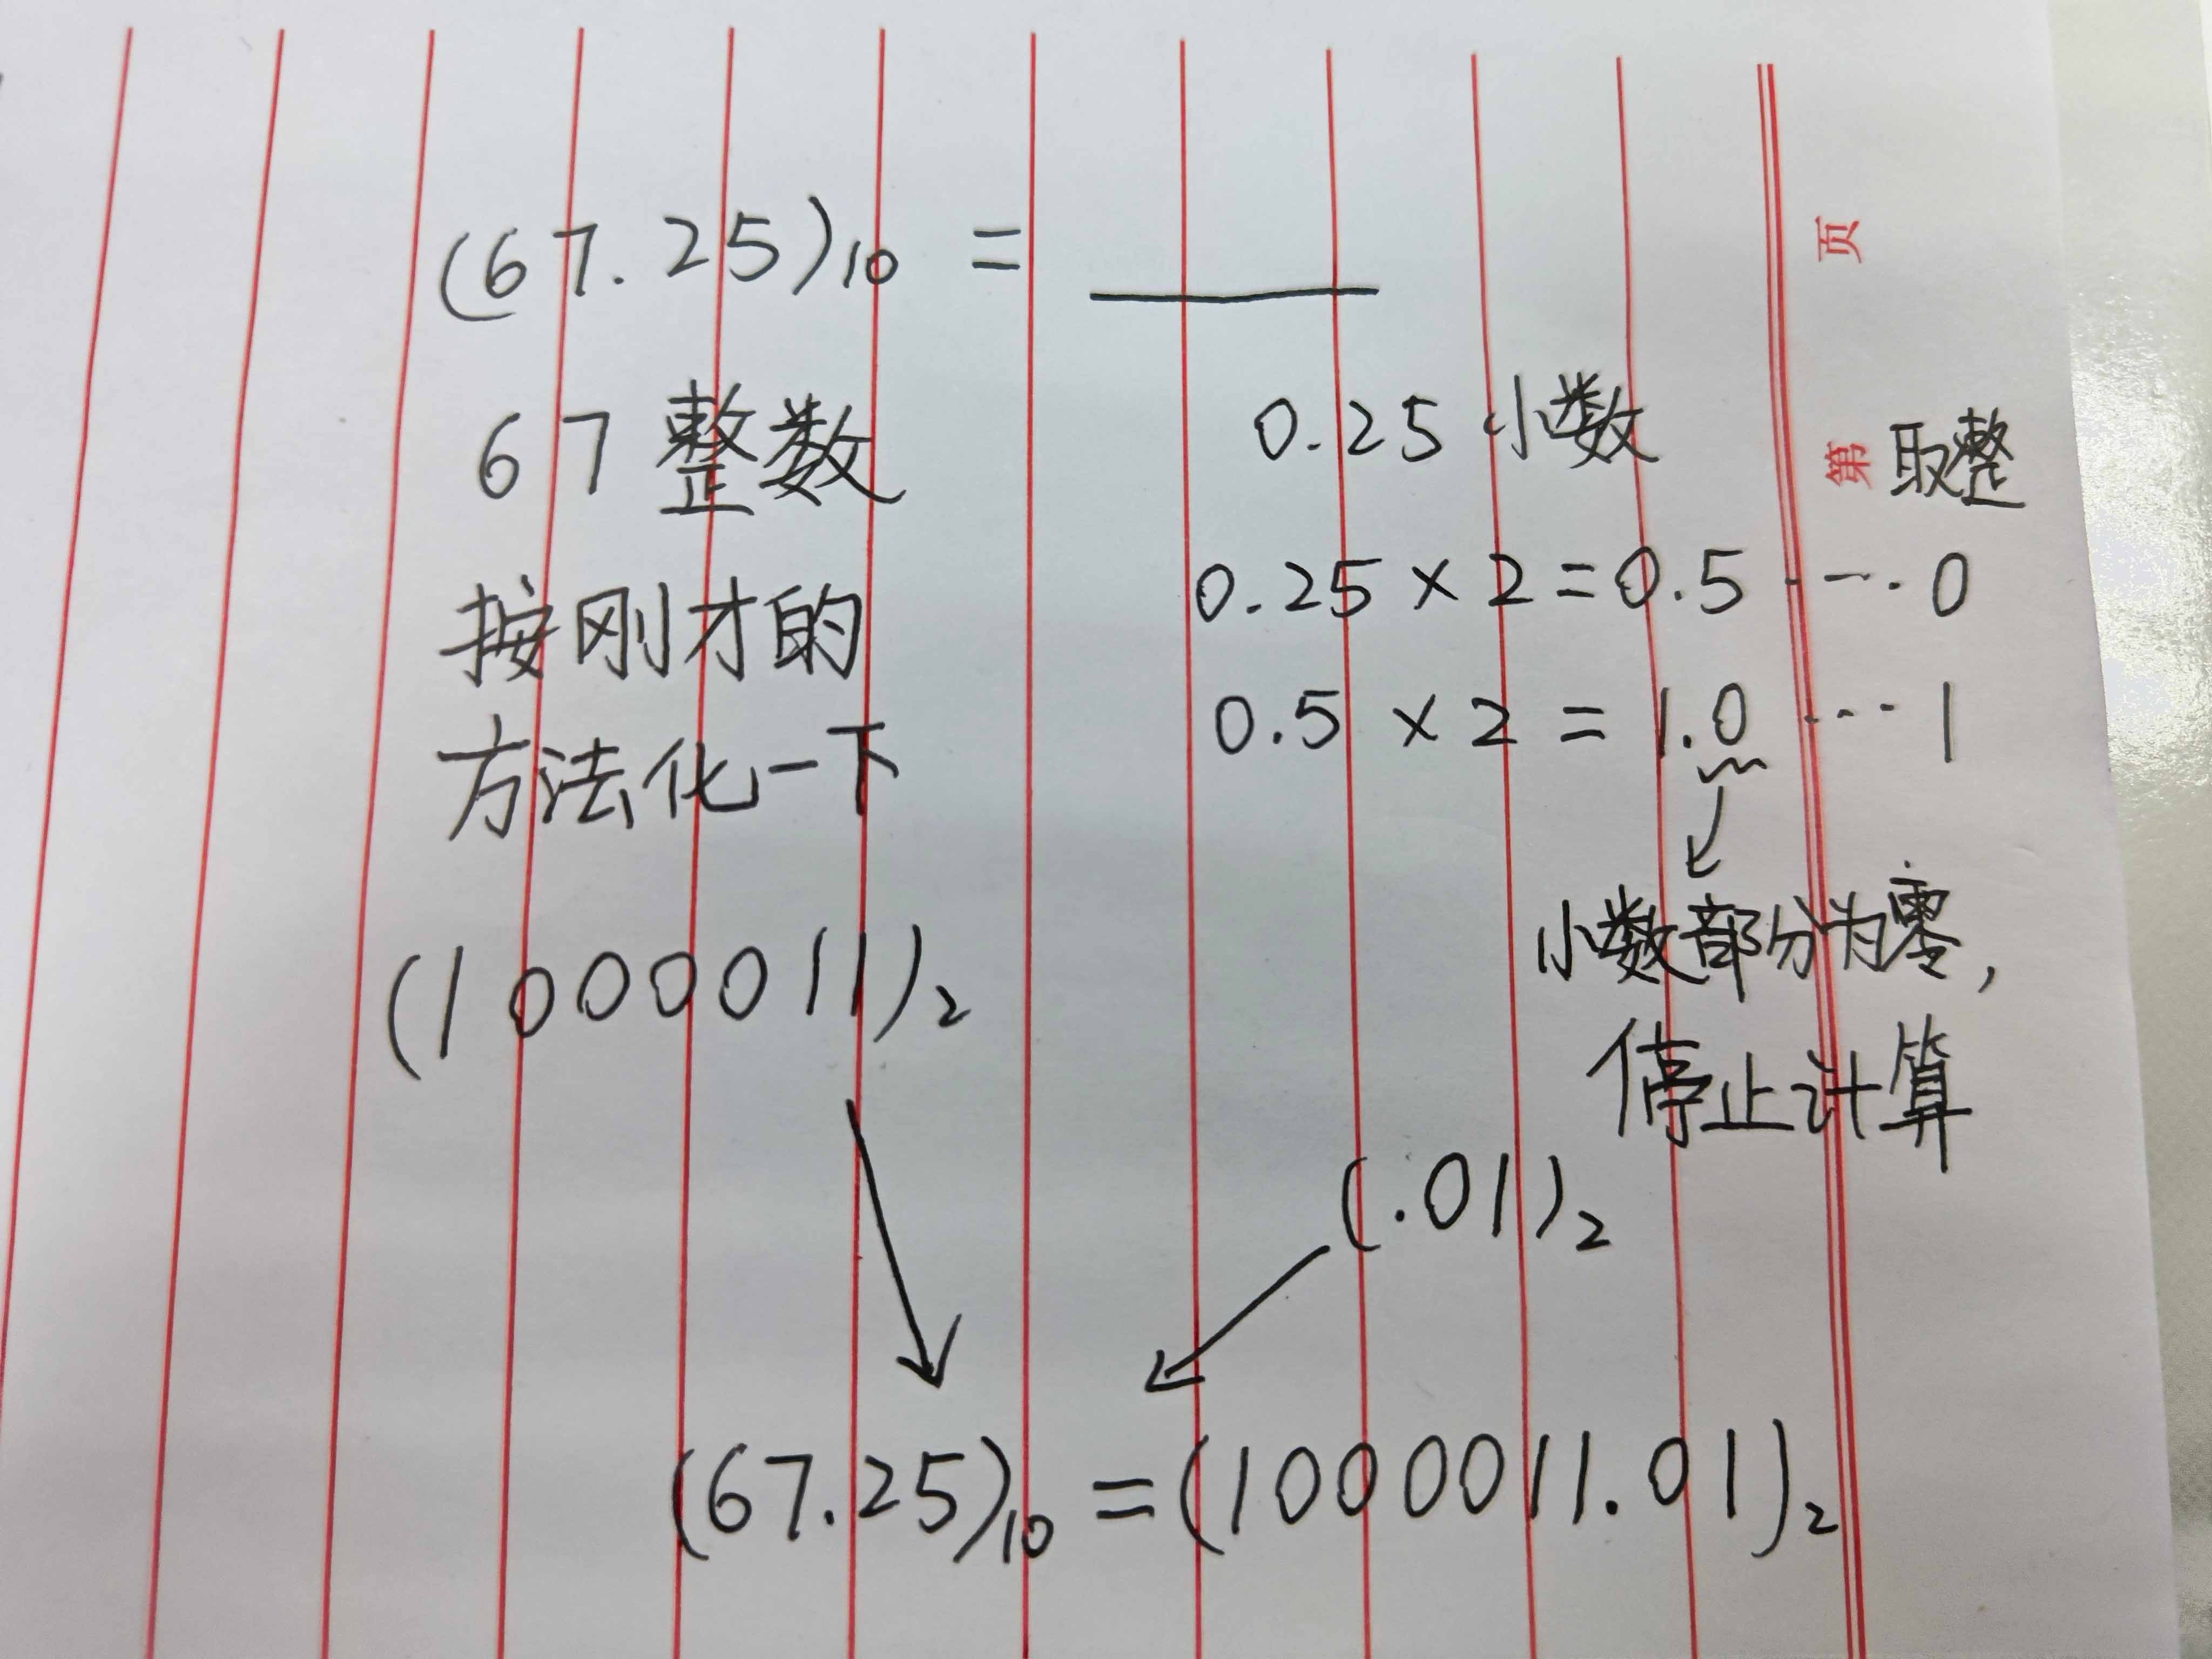 (67.25)₁₀ = ____
67 整数
按刚才的
方法化一下
(1000011)₂
0.25 小数
取整
0.25 × 2 = 0.5 ···· 0
0.5 × 2 = 1.0 ···· 1
小数部分为零,
停止计算
(.01)₂
(67.25)₁₀ = (1000011.01)₂
页
第